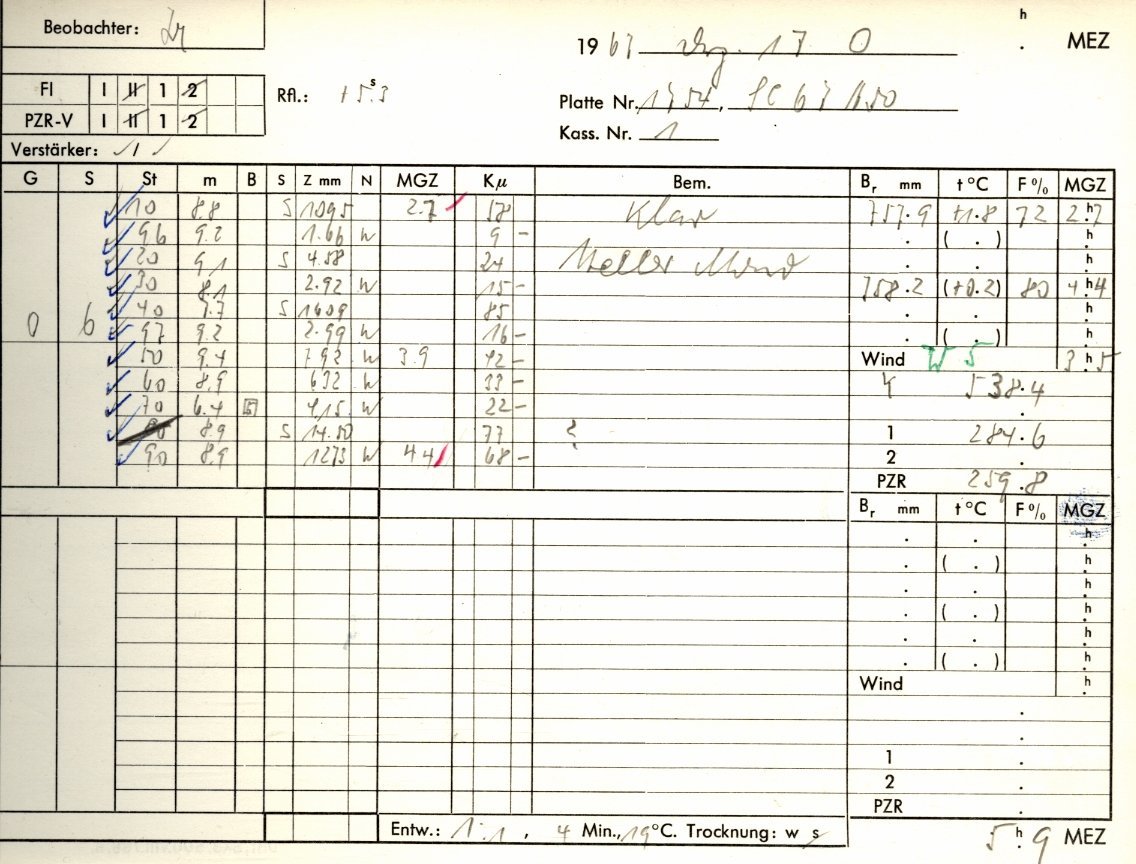 Beobachter:
h
19 67 Dez. 17 0 . MEZ
FI I II 1 2
Rfl.: +5.3 s
PZR-V I II 1 2
Platte Nr. 1754,
Kass. Nr. 1
Verstärker: 1
G S St m B S Z mm N MGZ Kμ Bem. Br mm t°C F% MGZ
10 8.8 S 1095 2.7 58 Klar 757.9 +1.8 72 2.7 h
96 9.2 1.66 W 9 - ( . ) h
20 9.1 S 4.58 24 Heller Mond . h
30 8.1 2.92 W 15 - 758.2 (+0.2) 80 4.4 h
40 S 1609 85 . h
0 6 97 9.2 2.99 W 16 - ( . ) h
50 9.4 792 W 3.9 42 - Wind W 5 3.5 h
60 8.9 632 W 33 - 538.4
70 6.4 5 415 W 22 - .
80 8.9 S 14.50 77 ? 1 284.6
90 8.9 1273 W 4.4 68 - 2 .
PZR 259.8
Br mm t°C F% MGZ
. . h
. ( . ) h
. . h
. ( . ) h
. . h
. ( . ) h
Wind h
.
.
1 .
2 .
PZR .
Entw.: 1:1, 4 Min., 19°C. Trocknung: w s
5 h . 9 MEZ